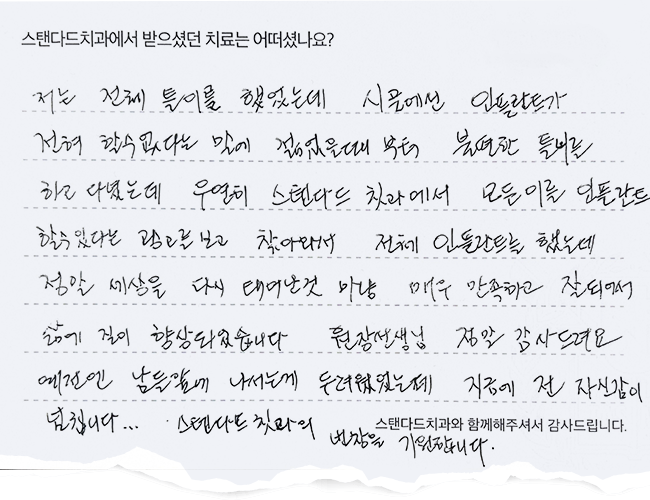 스탠다드치과에서 받으셨던 치료는 어떠셨나요?
저는 전체 틀이를 했었는데 시골에선 인플란트가
전혀 할수없다는 말에 젊었을때부터 불편한 틀니를
하고 다녔는데 우연히 스텐다드 칫과에서 모든이를 인플란트
할수있다는 광고를보고 찾아와서 전체 인플란트를 했는데
정말 세상을 다시 태어난것 마냥 매우 만족하고 잘되어서
삶에 질이 향상되었습니다 원장선생님 정말 감사드려요
예전엔 남들앞에 나서는게 두려웠었는데 지금에 전 자신감이
넘칩니다... 스텐다드칫과의 번창을 기원합니다.
스탠다드치과와 함께해주셔서 감사드립니다.